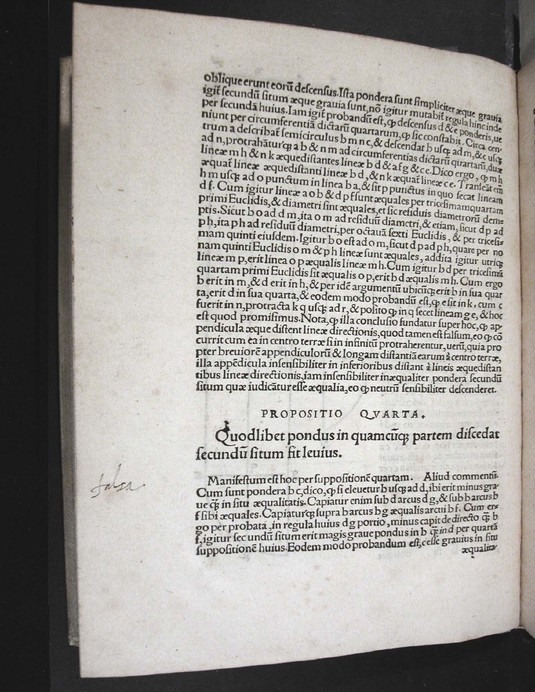 oblique erunt eorū descensus. Ista pondera sunt simpliciter æque grauia
igit̃ secundū situm æque grauia sunt, nō igitur mutabit̃ regula hinc inde
per secundā huius. Iam igit̃ probandū est, ꝙ descensus d & e ponderis, ut
niunt per circumferentiā dictarū quartarum, ꝙ sic constabit. Circa cen
trum a describat̃ semicirculus b m n c, & descendat b usꝙ ad m, & c usꝙ
ad n, protrahāturꝙ a b & n m ad circumferentias dictarū quartarū, duæ
lineæ m h & n k æquedistantes lineæ b d & a f g & c e. Dico ergo, ꝙ m h
æquat̃ lineæ æquedistanti lineæ b d, & n k æquat̃ lineæ c e. Transeat em̄
h m usꝙ ad o punctum in linea b a, & sit p punctus in quo secat lineam
d f. Cum igitur lineæ a o b & d p f sunt æquales per tricesimamquartam
primi Euclidis, & diametri sint æquales, et sic residuis diametrorū dem
ptis. Sicut b o ad d m, ita o m ad residuū diametri, & etiam, sicut d p ad
p h, ita p h ad residuū diametri, per octauā sexti Euclidis, & per tricesi
mam quinti eiusdem. Igitur b o est ad o m, sicut d p ad p h, quare per no
nam quinti Euclidis o m & p h lineæ sunt æquales, addita igitur utriꝙ
lineæ m p, erit linea o p æqualis lineæ m h. Cum igitur b d per tricesimā
quartam primi Euclidis sit æqualis o p, erit b d æqualis m h. Cum ergo
b erit in m, & d erit in h, & per idē argumentū ubicūꝙ erit b in sua quar
ta, erit d in sua quarta, & eodem modo probandū est, ꝙ e sit in k, cum c
fuerit in n, protracta k q usꝙ ad r, & polito q in q secet lineam g e, & hoc
est quod promisimus. Nota, ꝙ illa conclusio fundatur super hoc, ꝙ ap
pendicula æque distent lineæ directionis, quod tamen est falsum, eo ꝙ cō
currit cum ea in centro terræ si in infinitū protraherentur, uerū, quia pro
pter breuiorē appendiculorū & longam distantiā earum à centro terræ,
illa appēdicula insensibiliter in inferioribus distant à lineis æquedistan
tibus lineæ directionis, iam insensibiliter inæqualiter pondera secundū
situm quæ iudicātur esse æqualia, eo ꝙ neutrū sensibiliter descenderet.
PROPOSITIO QVARTA.
Quodlibet pondus in quamcūꝙ partem discedat
secundū situm fit leuius.
Manifestum est hoc per suppositionē quartam. Aliud commentū.
Cum sunt pondera b c, dico, ꝙ si eleuetur b usꝙ ad d, ibi erit minus gra
ue ꝙ̃ in situ æqualitatis. Capiatur enim sub d arcus d g, & sub b arcus b
f sibi æquales. Capiaturꝙ supra barcus b g æqualis arcui b f. Cum er
go per probata, in regula huius d g portio, minus capit de directo ꝙ̃ b
f, igitur secundū situm erit magis graue pondus in b ꝙ̃ in d per quartā
suppositionē huius. Eodem modo probandum est, c esse grauius in situ
æqualita
falsa